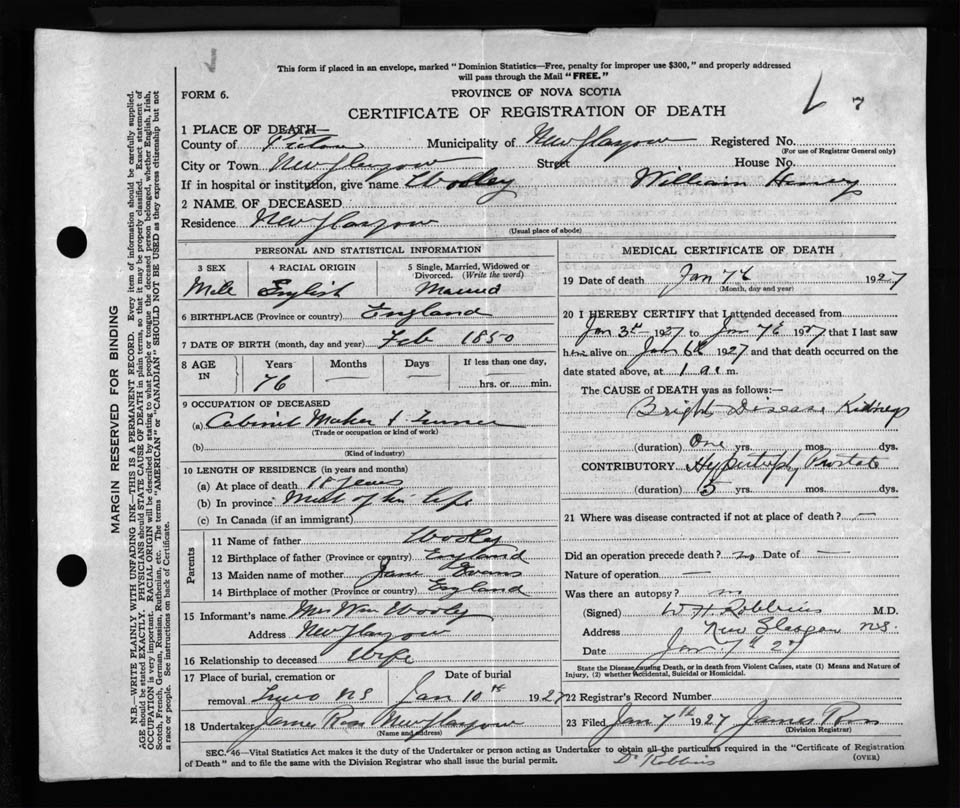 This form if placed in an envelope, marked "Dominion Statistics—Free, penalty for improper use $300," and properly addressed
will pass through the Mail "FREE."
FORM 6.
PROVINCE OF NOVA SCOTIA
CERTIFICATE OF REGISTRATION OF DEATH
MARGIN RESERVED FOR BINDING
N.B.—WRITE PLAINLY WITH UNFADING INK—THIS IS A PERMANENT RECORD. Every item of information should be carefully supplied.
AGE should be stated EXACTLY. PHYSICIANS should STATE CAUSE OF DEATH in plain terms, so that it may be properly classified. Exact statement of
OCCUPATION is very important. RACIAL ORIGIN will be described by stating to what people or tongue the deceased person belonged, whether English, Irish,
Scotch, French, German, Russian, Ruthenian, etc. The terms "AMERICAN" or "CANADIAN" SHOULD NOT BE USED as they express citizenship but not
a race or people. See instructions on back of Certificate.
1 PLACE OF DEATH—
County of Pictou Municipality of New Glasgow Registered No.
(For use of Registrar General only)
City or Town New Glasgow Street House No.
If in hospital or institution, give name Wooley William Henry
2 NAME OF DECEASED
Residence New Glasgow
(Usual place of abode)
PERSONAL AND STATISTICAL INFORMATION
3 SEX 4 RACIAL ORIGIN 5 Single, Married, Widowed or
Divorced. (Write the word)
Male English Married
6 BIRTHPLACE (Province or country) England
7 DATE OF BIRTH (month, day and year) Feb 1850
8 AGE IN Years Months Days If less than one day,
76 — — hrs. or min.
9 OCCUPATION OF DECEASED
(a) Cabinet Maker &
(Trade or occupation or kind of work)
(b)
(Kind of industry)
10 LENGTH OF RESIDENCE (in years and months)
(a) At place of death 18 years
(b) In province Most of his life
(c) In Canada (if an immigrant)
Parents
11 Name of father Wooley
12 Birthplace of father (Province or country) England
13 Maiden name of mother Jane Evans
14 Birthplace of mother (Province or country) England
15 Informant's name Mrs Wm Wooley
Address New Glasgow
16 Relationship to deceased Wife
17 Place of burial, cremation or Date of burial
removal Truro NS Jan 10th 1927
18 Undertaker James Ross New Glasgow
(Name and address)
MEDICAL CERTIFICATE OF DEATH
19 Date of death Jan 7th 1927
(Month, day and year)
20 I HEREBY CERTIFY that I attended deceased from
Jan 3rd 1927 to Jan 7th 1927 that I last saw
him alive on Jan 6th 1927 and that death occurred on the
date stated above, at 1 a. m.
The CAUSE of DEATH was as follows:—
Brights Disease Kidneys
(duration) One yrs. mos. dys.
CONTRIBUTORY Hypertrophy Prostate
(duration) 5 yrs. mos. dys.
21 Where was disease contracted if not at place of death? —
Did an operation precede death? no Date of —
Nature of operation —
Was there an autopsy? no
(Signed) W. H. Robbins M.D.
Address New Glasgow N.S.
Date Jan 7th 27
State the Disease causing Death, or in death from Violent Causes, state (1) Means and Nature of
Injury, (2) whether Accidental, Suicidal or Homicidal.
22 Registrar's Record Number
23 Filed Jan 7th 1927 James Ross
(Division Registrar)
SEC. 46—Vital Statistics Act makes it the duty of the Undertaker or person acting as Undertaker to obtain all the particulars required in the "Certificate of Registration
of Death" and to file the same with the Division Registrar who shall issue the burial permit.
Dr Robbins
(OVER)